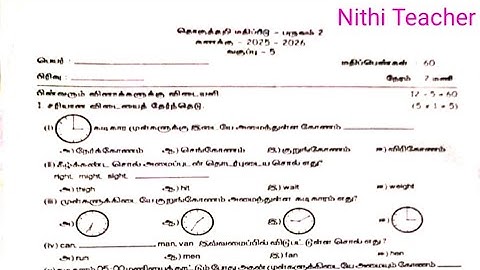 Nithi Teacher
தொகுத்தறி மதிப்பீடு - பருவம் 2
கணக்கு - 2025 - 2026
வகுப்பு - 5
பெயர் : மதிப்பெண்கள் : 60
பிரிவு : நேரம் : 2 மணி
பின்வரும் வினாக்களுக்கு விடையளி 12 - 5 = 60
1. சரியான விடையைத் தேர்ந்தெடு. (5 x 1 = 5)
(i) கடிகார முள்களுக்கு இடையே அமைந்துள்ள கோணம்
அ) நேர்க்கோணம் ஆ) செங்கோணம் இ) குறுங்கோணம் ஈ) விரிகோணம்
(ii) கீழ்க்கண்ட சொல் அமைப்புடன் தொடர்புடைய சொல் எது?
right, might, sight,
அ) thigh ஆ) hit இ) wait ஈ) weight
(iii) முள்களுக்கிடையே குறுங்கோணம் அமைந்துள்ள கடிகாரம் எது?
அ) ஆ) இ) ஈ)
(iv) can, man, van இவ்வமைப்பில் விடுபட்டுள்ள சொல் எது?
அ) run ஆ) men இ) fan ஈ) hen